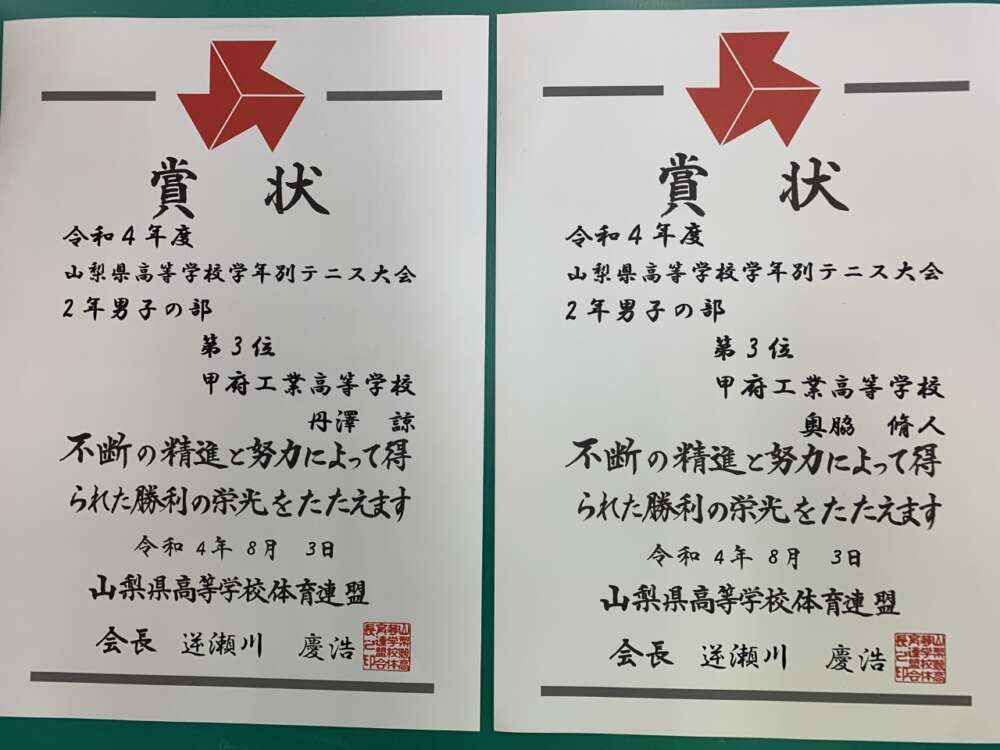 賞 状
令和4年度
山梨県高等学校学年別テニス大会
2年男子の部
第3位
甲府工業高等学校
丹澤 諒
不断の精進と努力によって得
られた勝利の栄光をたたえます
令和 4年 8月 3日
山梨県高等学校体育連盟
会長 逆瀬川 慶浩
賞 状
令和4年度
山梨県高等学校学年別テニス大会
2年男子の部
第3位
甲府工業高等学校
奥脇 脩人
不断の精進と努力によって得
られた勝利の栄光をたたえます
令和 4年 8月 3日
山梨県高等学校体育連盟
会長 逆瀬川 慶浩